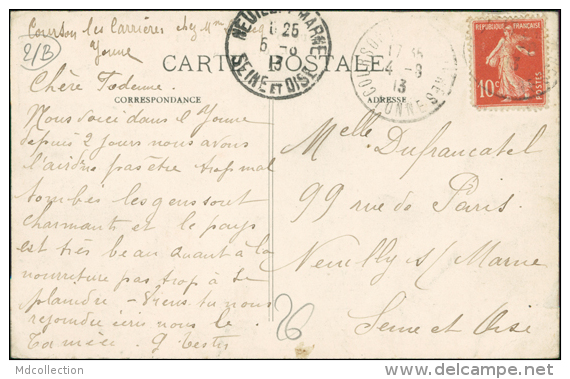 Courson les Carrières chez Mme
Yonne
2/B
NEUILLY-MARNE
25
5-8
13
SEINE ET OISE
4-8
13
YONNE
REPUBLIQUE FRANÇAISE
10c
POSTES
CARTE POSTALE
CORRESPONDANCE
ADRESSE
Chère
Nous voici dans l'Yonne
depuis 2 jours nous avons
l'air de pas être trop mal
tombés les gens sont
charmants et le pays
est très beau quant à la
nourriture pas trop à se
plaindre - Viens tu nous
rejoindre ici nous le
Melle Dufrancatel
99 rue de Paris
Neuilly s/ Marne
Seine et Oise
26
Mdcollection
delcampe.net